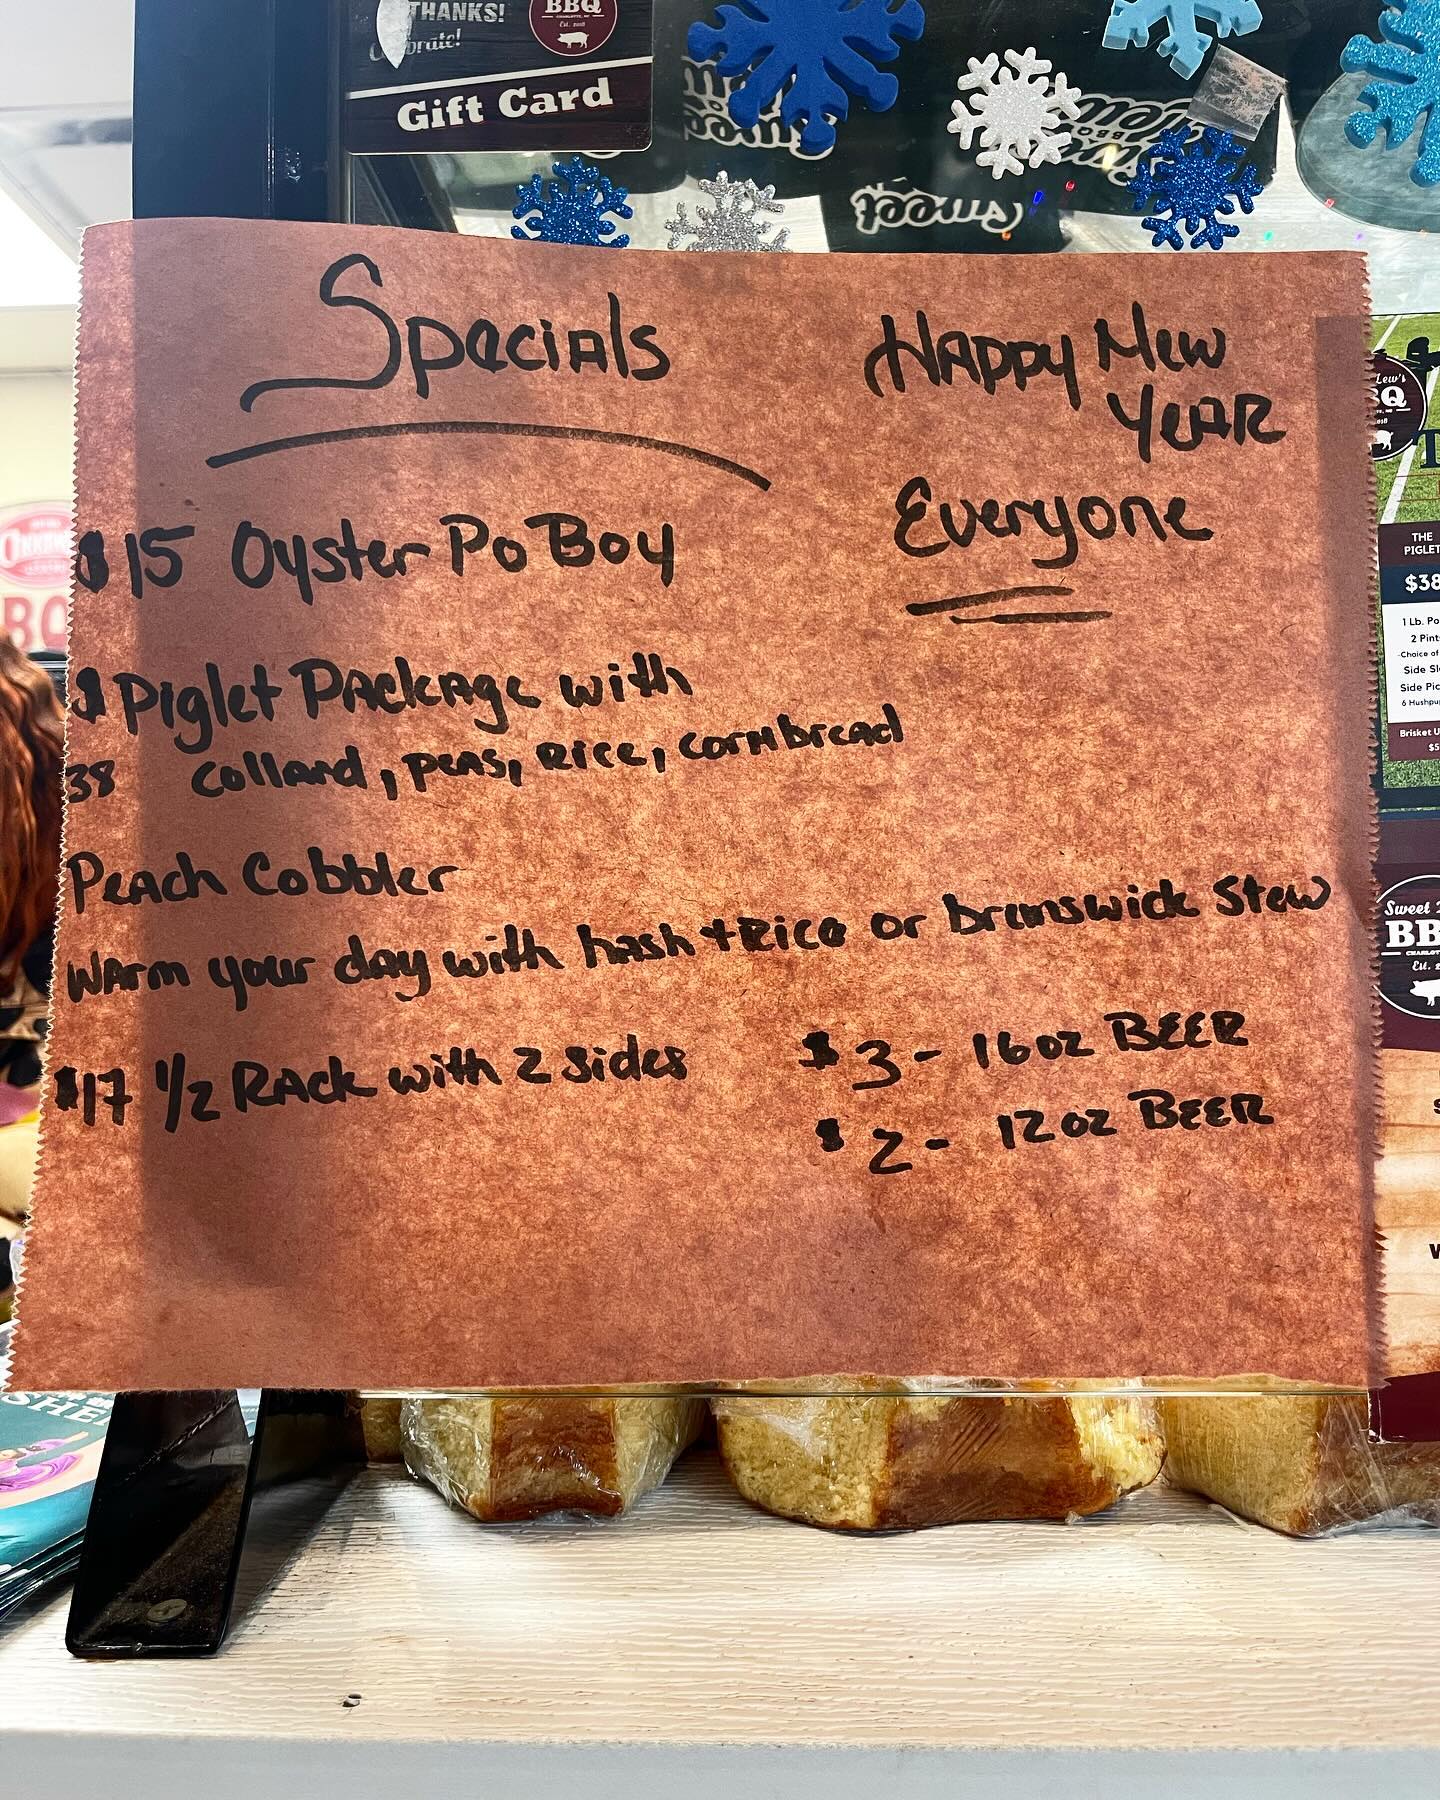 THANKS!
BBQ
CHARLOTTE, NC
Est. 2018
Gift Card
Sweet
BBQ
Specials
HAPPY New
YEAR
Everyone
$15 Oyster Po Boy
$ Piglet PACKAge with
38 collard, peas, RICE, cornbread
Peach Cobbler
WArm your day with hash + RICE or brunswick Stew
$17 1/2 RAck with 2 sides
$3 - 16oz BEER
$2 - 12oz BEER
Lew's
THE
PIGLET
$38
1 Lb. Po
2 Pint
-Choice of
Side Sl
Side Pic
6 Hushpup
Brisket U
$5
Sweet
BB
Est. 2